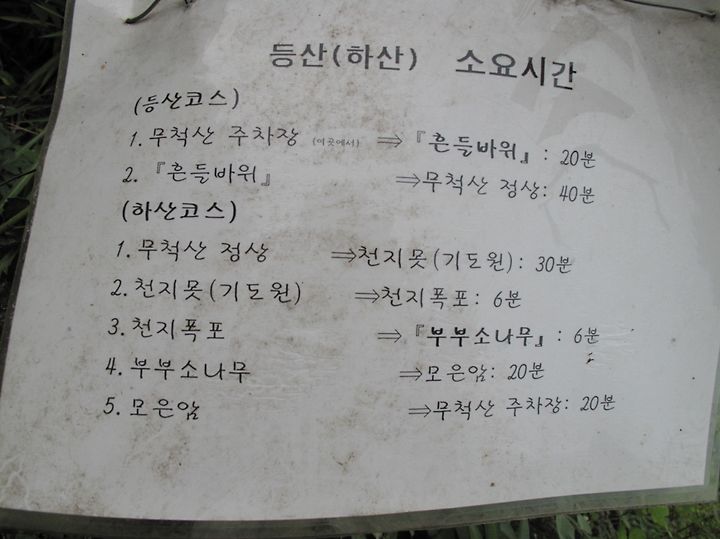 등산(하산) 소요시간
(등산코스)
1. 무척산 주차장 (이곳에서) ⇒ 『흔들바위』 : 20분
2. 『흔들바위』 ⇒무척산 정상: 40분
(하산코스)
1. 무척산 정상 ⇒천지못(기도원): 30분
2. 천지못(기도원) ⇒천지폭포: 6분
3. 천지폭포 ⇒ 『부부소나무』 : 6분
4. 부부소나무 ⇒모은암: 20분
5. 모은암 ⇒무척산 주차장: 20분